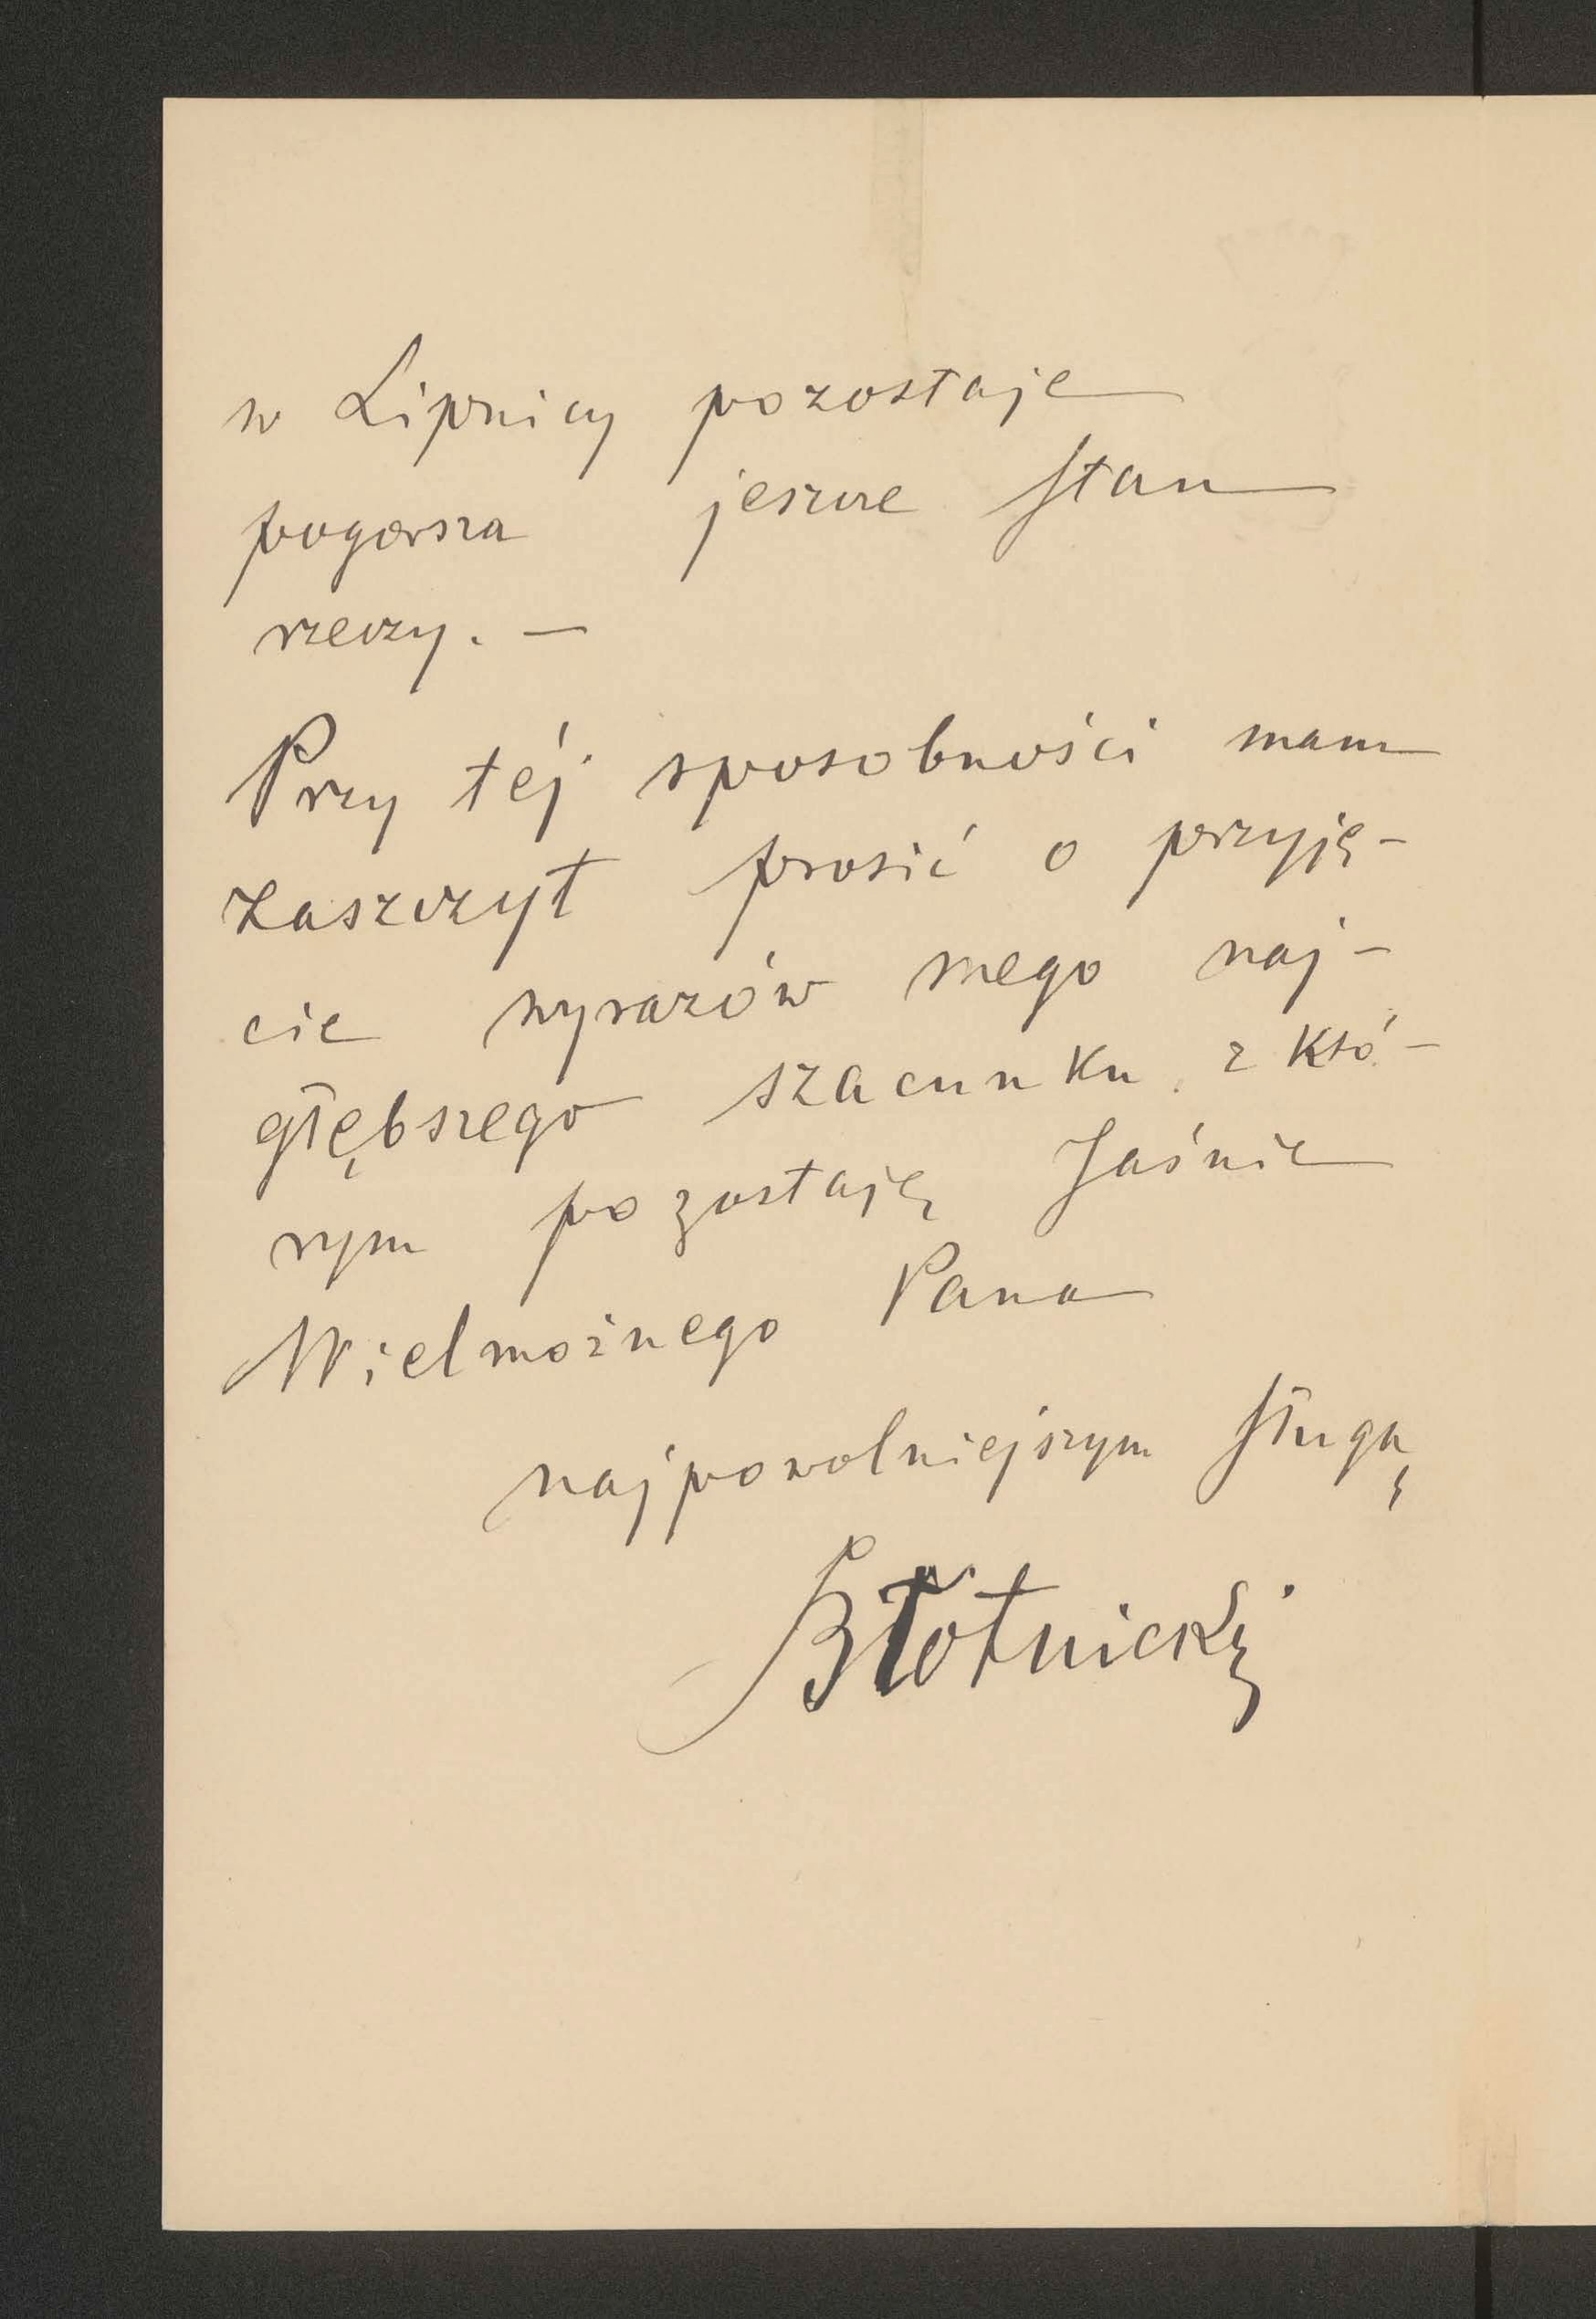 w Lipnicy pozostaje
pogarsza jeszcze stan
rzeczy. —
Przy téj sposobności mam
zaszczyt prosić o przyję-
cie wyrazów mego naj-
głębszego szacunku, z któ-
rym pozostaję Jaśnie
Wielmożnego Pana
najpowolniejszym sługą
Błotnicki